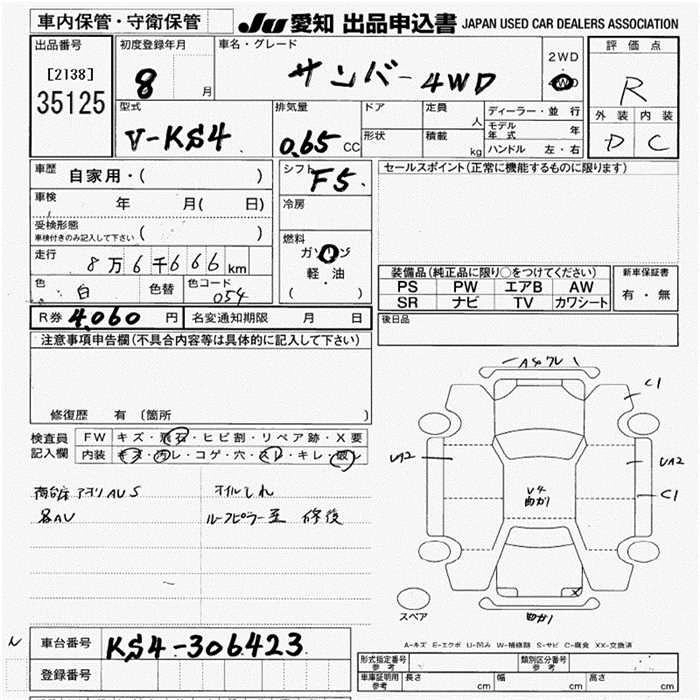 車内保管・守衛保管
JU 愛知 出品申込書 JAPAN USED CAR DEALERS ASSOCIATION
出品番号
[2138]
35125
初度登録年月
8 月
車名・グレード
サンバー4WD
2WD
4WD
評価点
R
外装 内装
D C
型式
V-KS4
排気量
0.65 CC
ドア
定員
人
形状
積載
kg
ディーラー・並 行
モデル年式 年
ハンドル 左・右
車歴
自家用・( )
車検
年 月( 日)
受検形態
車検付きのみ記入して下さい ( )
走行
8万6千666km
色 白 色替 色コード 054
シフト
F5
冷房
燃料
ガソリン
軽・油
( )
セールスポイント(正常に機能するものに限ります)
装備品(純正品に限り○をつけてください)
PS PW エアB AW
SR ナビ TV カワシート
新車保証書
有・無
R券 4,060 円 名変通知期限 月 日
後日品
注意事項申告欄(不具合内容等は具体的に記入して下さい)
修復歴 有 (箇所 )
検査員
記入欄
FW キズ・飛石・ヒビ割・リペア跡・X要
内装 キズ・汚レ・コゲ・穴・スレ・キレ・破レ
オイルもれ
各AU
ルーフピラー歪 修後
C1
UA2
UA2
C1
スペア
A-キズ E-エクボ U-凹み W-補修跡 S-サビ C-腐食 XX-交換済
車台番号 KS4-306423
登録番号
形式指定番号
参考
類別区分番号
参考
車庫証明用
参考
長さ cm 幅 cm 高さ cm